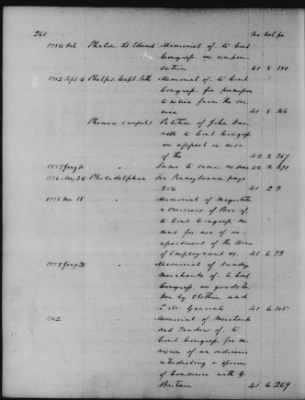 260 No. Vol. pa.
Phelon Lt Edward Memorial of. to Cont
Congress. on compen
sation 41 8 180
1782 Sept 4 Phelps, Capt. Seth Memorial of. to Cont
Congress. for permission
to retire from the ser
vice 41 8 166
Phenix sloop Petition of John Dar
to Cont Congress
on appeal in case
of the 42 2 267
" Same to same on same 42
Philadelphia See Pennsylvania page
256 41 2 9
1778 Memorial of Magistrates
& Overseers of Poor of.
to Cont Congress. Pay
ment for use of an
apartment of the House
of Employment &c. 41 6 73
1779 Jany 25 " Memorial of Sundry
Merchants of. to Cont
Congress. on goods ta
ken by Clothier and
Q. M. General 41 6 105
1782 " Memorial of Merchants
and Traders of. to
Cont Congress for re
vision of an ordinance
interdicting a species
of Commerce with G
Britain 41 6 269